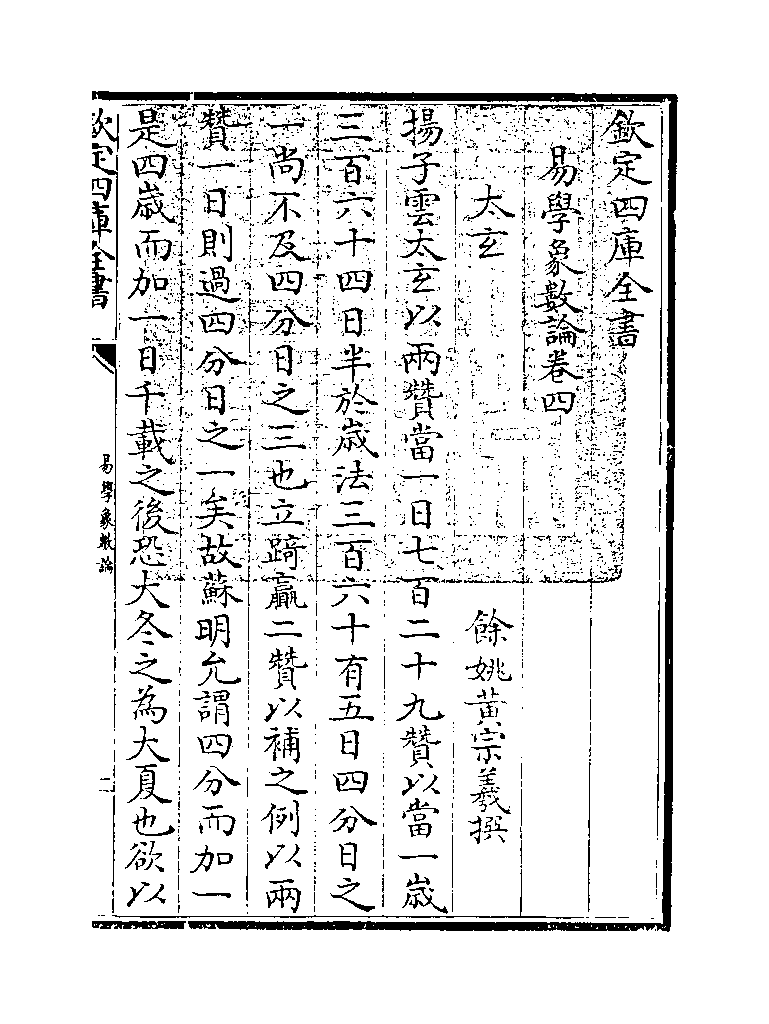 欽定四庫全書
易學象數論卷四
餘姚黃宗羲撰
太玄
揚子雲太玄以兩贊當一日七百二十九贊以當一歳
三百六十四日半於歳法三百六十有五日四分日之
一尚不及四分日之三也立踦贏二贊以補之例以兩
贊一日則過四分日之一矣故蘇明允謂四分而加一
是四歳而加一日千載之後恐大冬之為大夏也欲以
欽定四庫全書
易學象數論